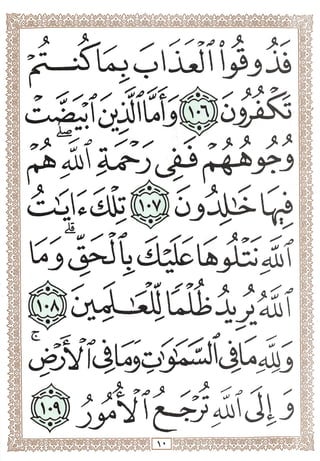 فَذُوقُوا۟ ٱلْعَذَابَ بِمَا كُنتُمْ
تَكْفُرُونَ ١٠٦ وَأَمَّا ٱلَّذِينَ ٱبْيَضَّتْ
وُجُوهُهُمْ فَفِى رَحْمَةِ ٱللَّهِ ۖ هُمْ
فِيهَا خَـٰلِدُونَ ١٠٧ تِلْكَ ءَايَـٰتُ
ٱللَّهِ نَتْلُوهَا عَلَيْكَ بِٱلْحَقِّ ۗ وَمَا
ٱللَّهُ يُرِيدُ ظُلْمًا لِّلْعَـٰلَمِينَ ١٠٨
وَلِلَّهِ مَا فِى ٱلسَّمَـٰوَٰتِ وَمَا فِى ٱلْأَرْضِ ۚ
وَإِلَى ٱللَّهِ تُرْجَعُ ٱلْأُمُورُ ١٠٩
١٠